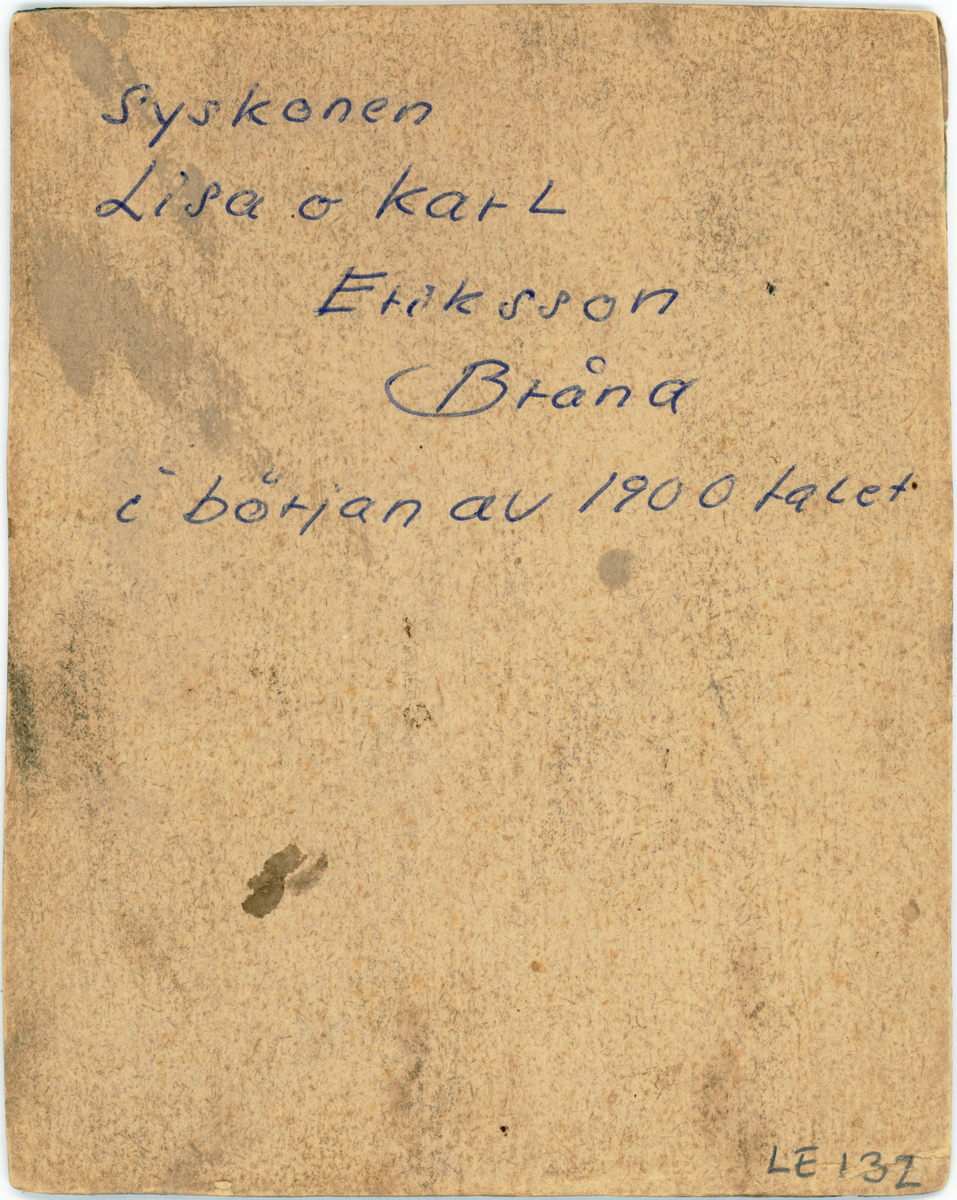 Syskonen
Lisa o Karl
Eriksson
Bråna
i början av 1900 talet
LE 132